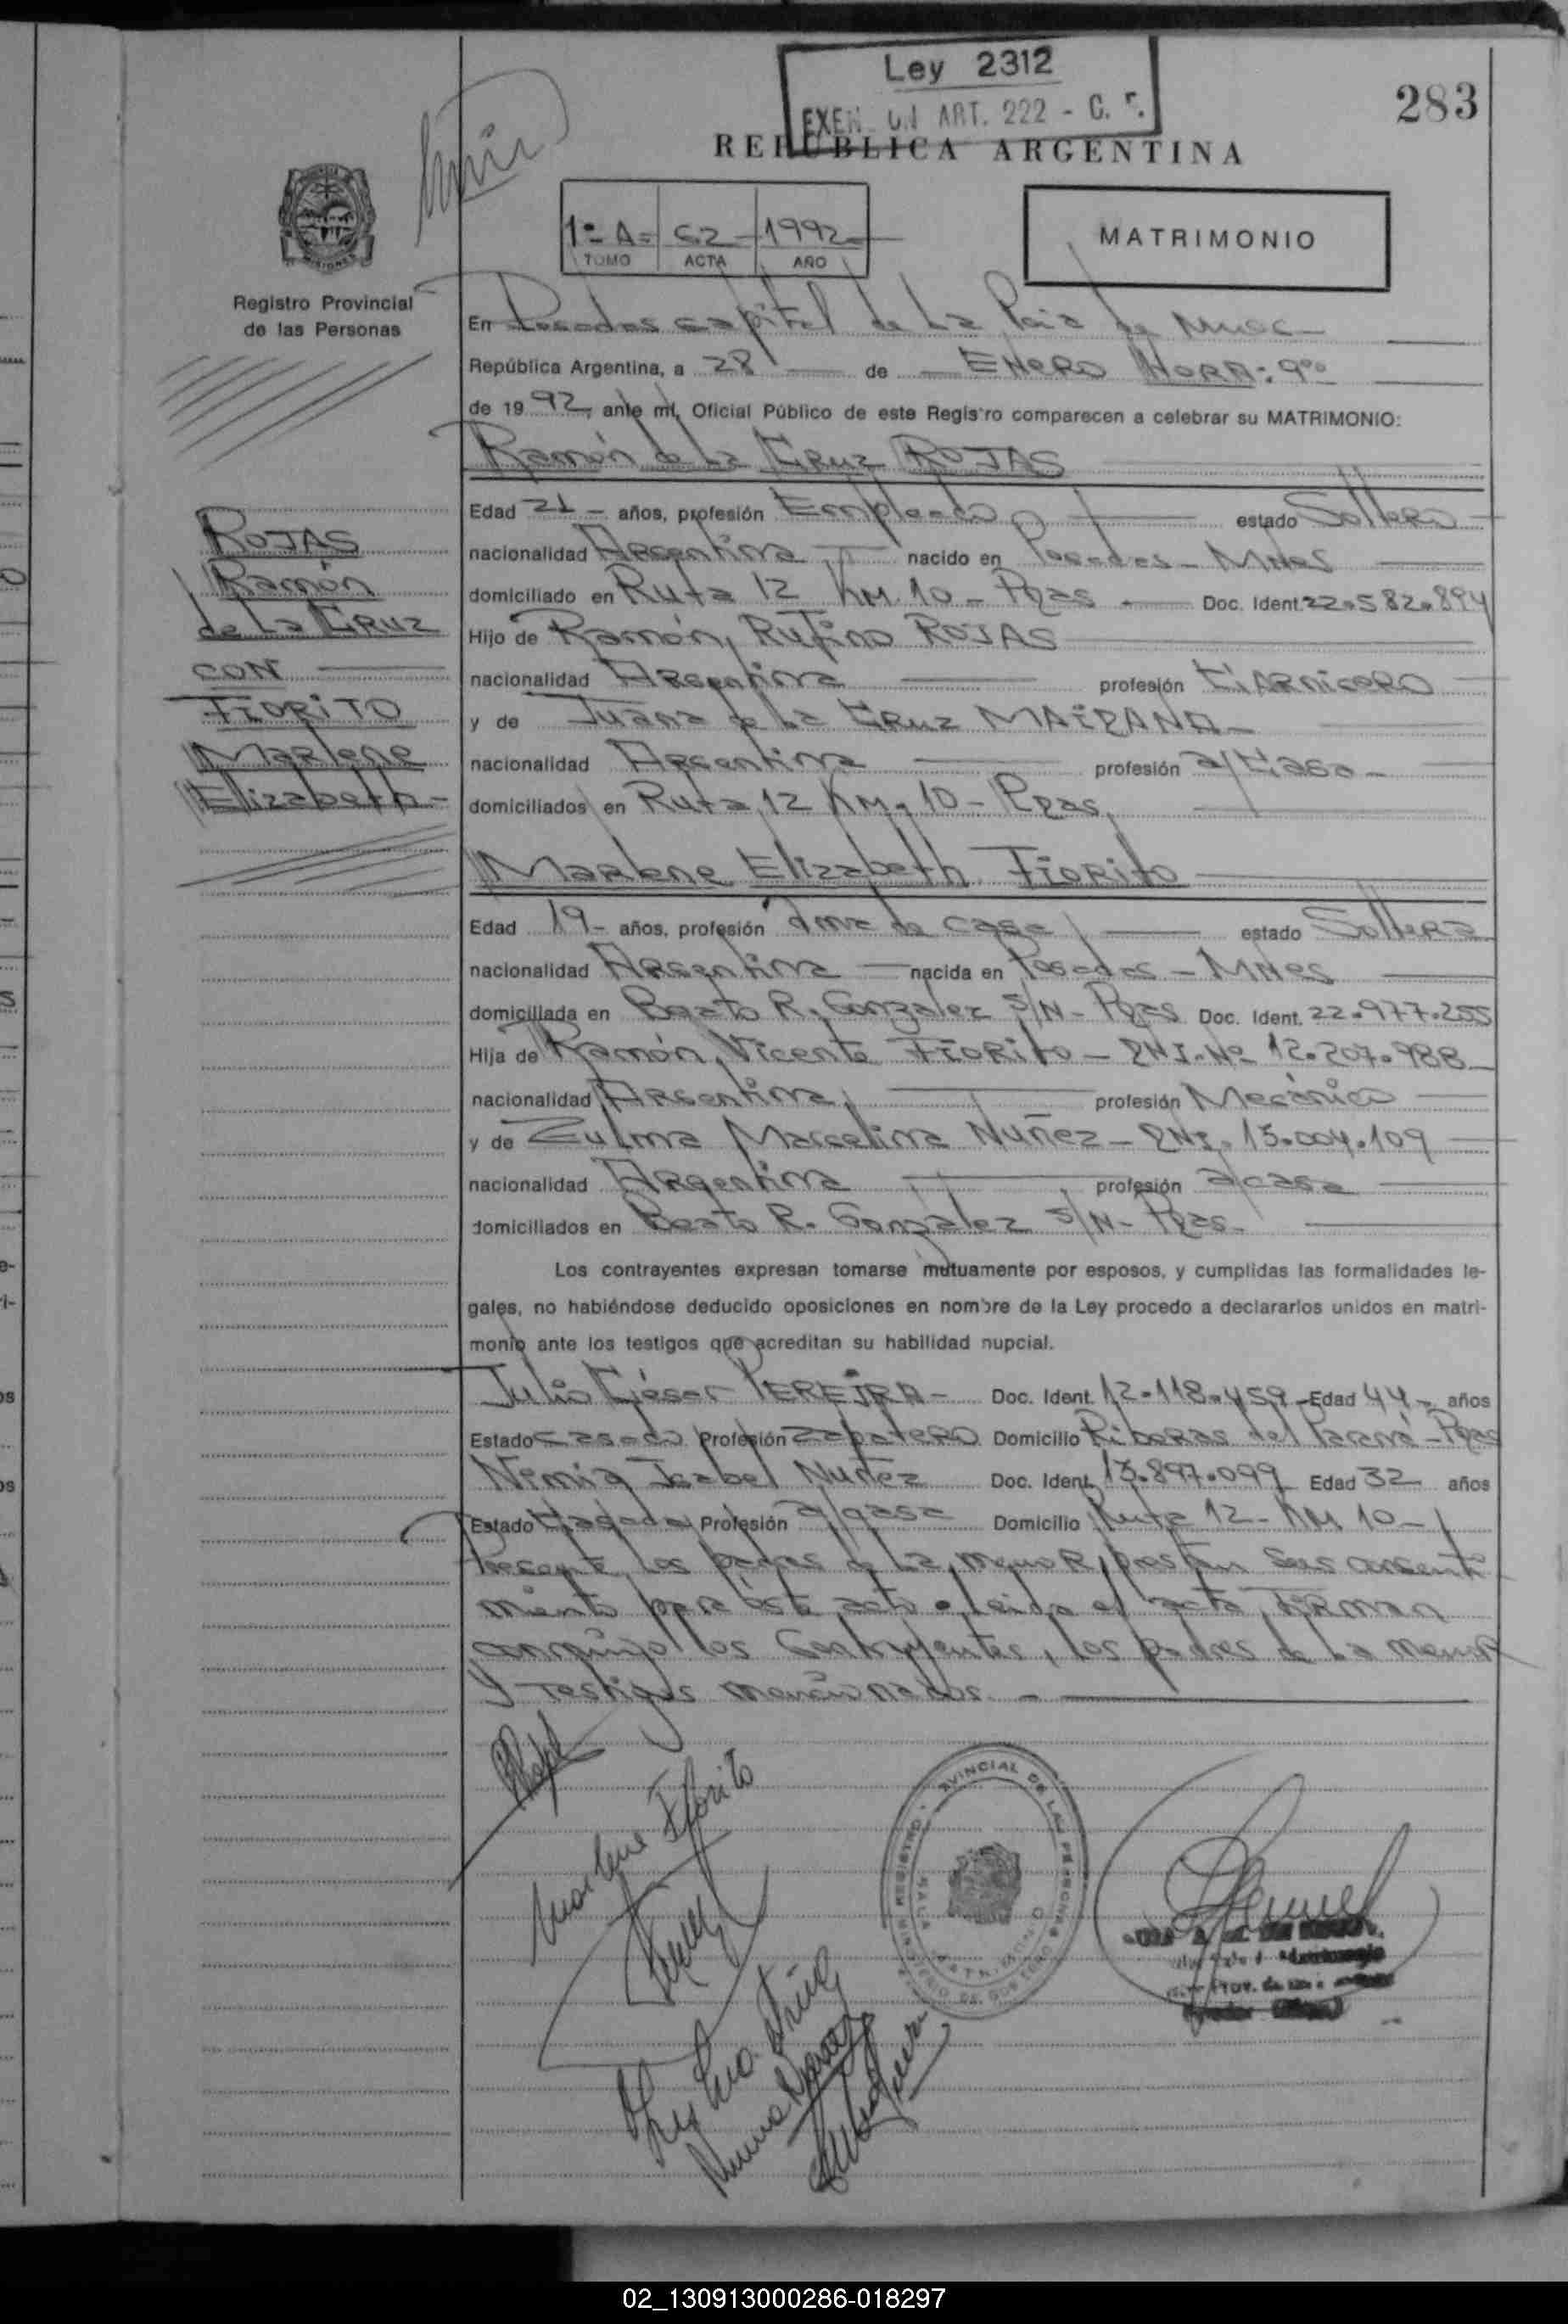 Ley 2312
ART. 222 - C.
283
REPUBLICA ARGENTINA
MISIONES
Registro Provincial
de las Personas
1º A= 52 1992
TOMO ACTA AÑO
MATRIMONIO
En Posadas capital de La Pcia de Mnes
República Argentina, a 28 de ENERO HORA: 9ºº
de 1992, ante mí, Oficial Público de este Registro comparecen a celebrar su MATRIMONIO:
Ramón de La Cruz ROJAS
Edad 21 - años, profesión Empleado estado Soltero
nacionalidad Argentina nacido en Posadas - Mnes
domiciliado en Ruta 12 KM. 10 - Pdas Doc. Ident. 22.582.894
Hijo de Ramón, Rufino ROJAS
nacionalidad Argentina profesión Carnicero
y de Juana de La Cruz MAIDANA -
nacionalidad Argentina profesión a/casa -
domiciliados en Ruta 12 KM. 10 - Pdas
ROJAS
Ramón
de La Cruz
CON
FIORITO
Marlene
Elizabeth -
Marlene Elizabeth Fiorito
Edad 19 - años, profesión Ama de casa estado Soltera
nacionalidad Argentina nacida en Posadas - Mnes
domiciliada en Beato R. Gonzalez S/N - Pdas Doc. Ident. 22.977.255
Hija de Ramón, Vicente Fiorito - DNI. Nº 12.207.988
nacionalidad Argentina profesión Mecánico
y de Zulma Marcelina Nuñez - DNI. 13.004.109
nacionalidad Argentina profesión a/casa
domiciliados en Beato R. Gonzalez S/N - Pdas.
Los contrayentes expresan tomarse mutuamente por esposos, y cumplidas las formalidades le-
gales, no habiéndose deducido oposiciones en nombre de la Ley procedo a declararlos unidos en matri-
monio ante los testigos que acreditan su habilidad nupcial.
Julio César PEREIRA - Doc. Ident. 12.118.459 - Edad 44 - años
Estado casado Profesión zapatero Domicilio Riberas del Paraná - Pdas
Nimia Isabel Nuñez Doc. Ident. 13.897.099 Edad 32 años
Estado casada Profesión a/casa Domicilio Ruta 12 - KM. 10 -
Presente los padres de La menor, prestan sus consenti
miento para este acto. Leida el acta, FIRMAN
conmigo los Contrayentes, los padres de La menor
y testigos mencionados. -
Marlene Fiorito
02_130913000286-018297